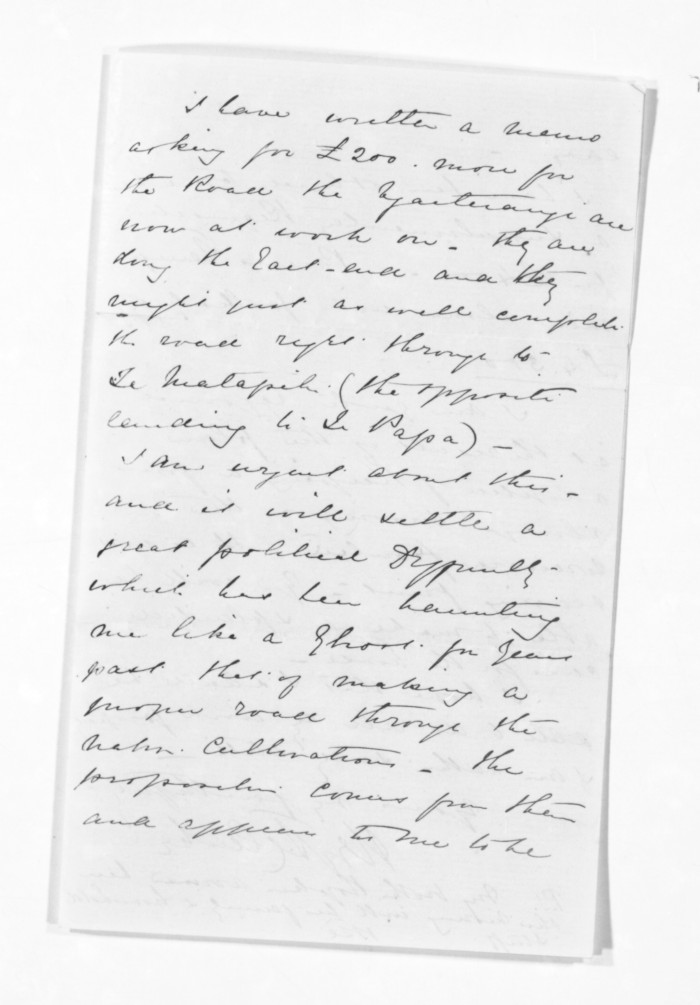 I have written a memo
asking for £200. more for
the Road the Ngaiterangi are
now at work on – they are
doing the East-end and they
might just as well complete
the road right through to
Te Matapihi (the opposite
landing to Te Papa) –
I am urgent about this –
and it will settle a
great political difficulty –
which has been haunting
me like a Ghost for years
past that of making a
proper road through the
native Cultivations – the
proposition comes from them
and appears to me to be